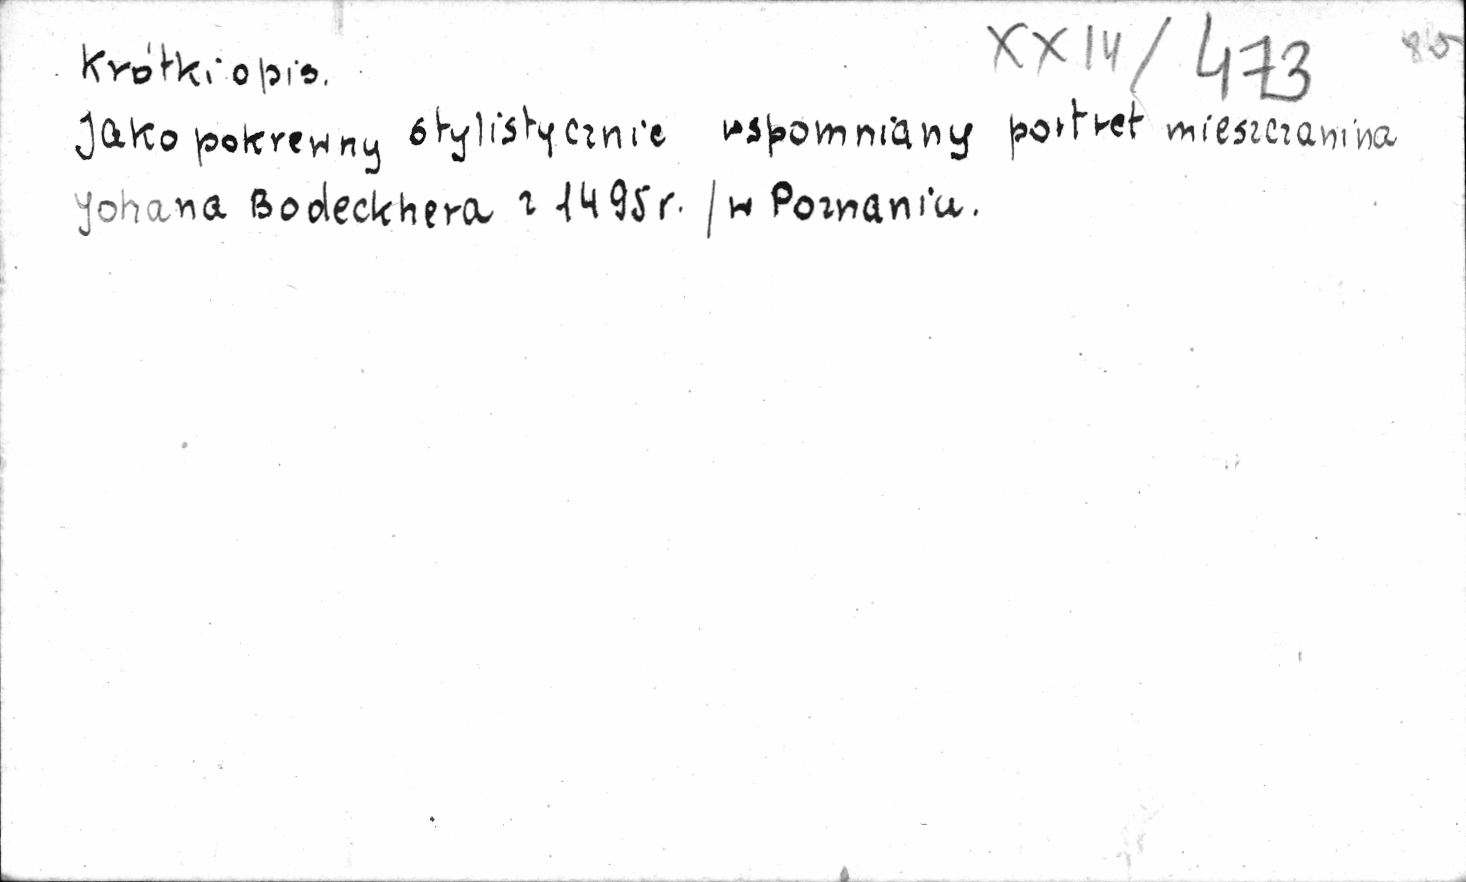 XXIV/473
Krótki opis.
Jako pokrewny stylistycznie wspomniany portret mieszczanina
Johana Bodeckhera z 1495 r. /w Poznaniu.